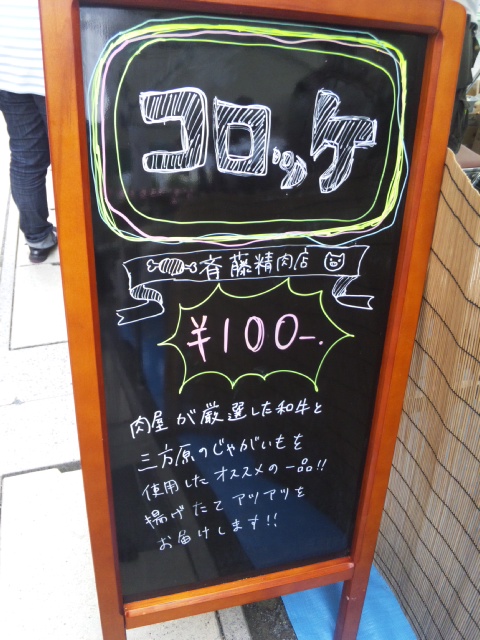 コロッケ
斉藤精肉店
¥100-.
肉屋が厳選した和牛と
三方原のじゃがいもを
使用したオススメの一品!!
揚げたてアツアツを
お届けします!!